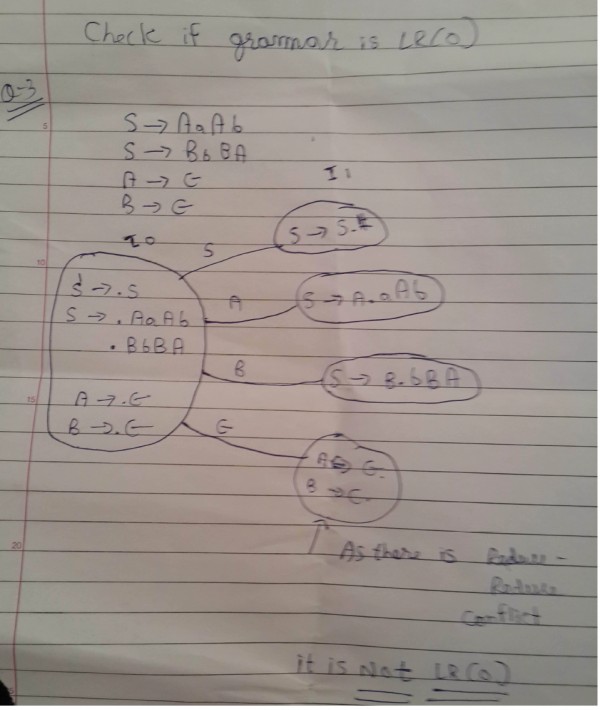 Check if grammar is LR(0)
Q-3
S → AaAb
S → BbBA
A → ϵ
B → ϵ
I1
I0
S
S → S.
S → .S
S → .AaAb
.BbBA
A → .ϵ
B → .ϵ
A
S → A.aAb
B
S → B.bBA
ϵ
A → ϵ.
B → ϵ.
As there is Reduce-
Reduce
conflict
it is Not LR(0)
5
10
15
20